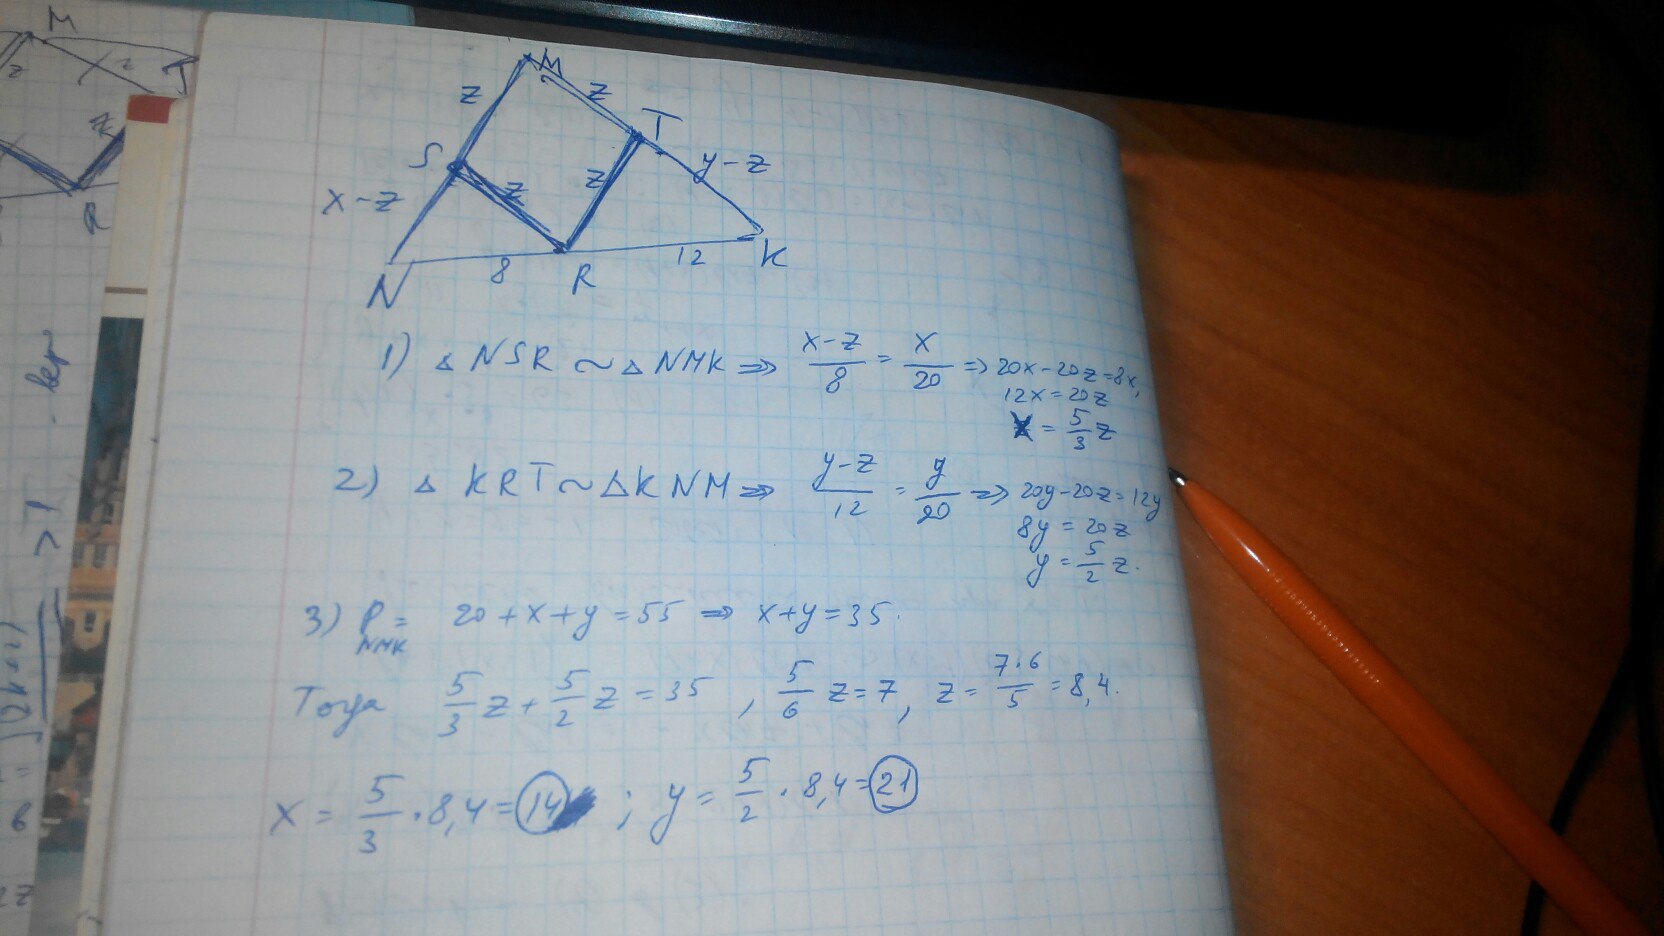 M
z
M
z
z
T
S
z
z
y-z
x-z
N
8
R
12
K
R
1) △ NSR ~ △ NMK ⇒ (x-z)/8 = x/20 ⇒ 20x-20z=8x,
12x=20z
x = 5/3 z
2) △ KRT ~ △KNM ⇒ (y-z)/12 = y/20 ⇒ 20y-20z=12y
8y=20z
y=5/2 z.
3) P NMK = 20+x+y=55 ⇒ x+y=35.
Тогда 5/3 z + 5/2 z = 35, 5/6 z=7, z= 7·6/5 =8,4.
x = 5/3 · 8,4 = 14 ; y = 5/2 · 8,4 = 21
> 1